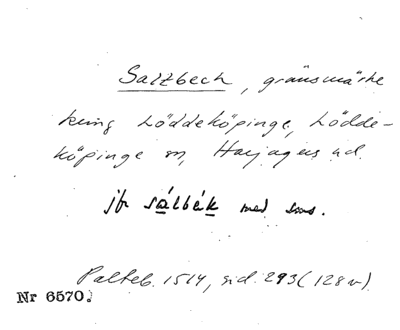 Saltzbech, gränsmärke
kring Löddeköpinge, Lödde-
köpinge sn, Harjagers hd.
jfr sálbäk med sms.
Palteb. 1514, sid. 293 (128 v).
Nr 6570.